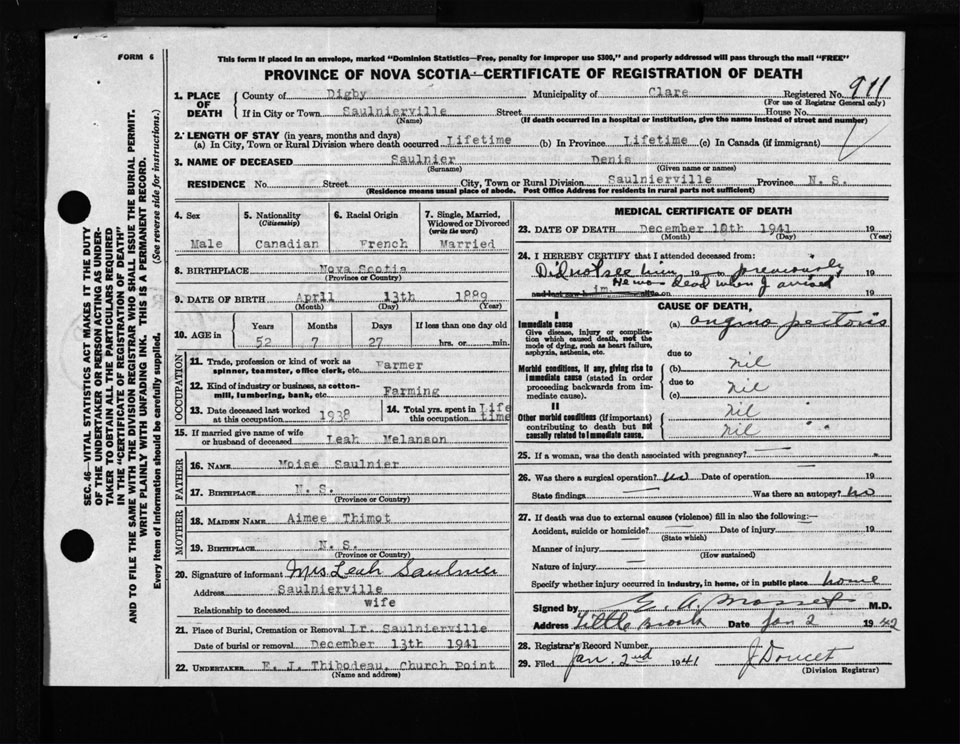 FORM 6
This form if placed in an envelope, marked "Dominion Statistics—Free, penalty for improper use $300," and properly addressed will pass through the mail "FREE"
PROVINCE OF NOVA SCOTIA—CERTIFICATE OF REGISTRATION OF DEATH
1. PLACE OF DEATH
County of Digby Municipality of Clare Registered No. 911
(For use of Registrar General only)
If in City or Town Saulnierville Street House No.
(Name) (If death occurred in a hospital or institution, give the name instead of street and number)
2. LENGTH OF STAY (in years, months and days)
(a) In City, Town or Rural Division where death occurred Lifetime (b) In Province Lifetime (c) In Canada (if immigrant)
3. NAME OF DECEASED Saulnier Denis
(Surname) (Given name or names)
RESIDENCE No. Street City, Town or Rural Division Saulnierville Province N. S.
(Residence means usual place of abode. Post Office Address for residents in rural parts not sufficient)
4. Sex Male
5. Nationality (Citizenship) Canadian
6. Racial Origin French
7. Single, Married, Widowed or Divorced (write the word) Married
8. BIRTHPLACE Nova Scotia
(Province or Country)
9. DATE OF BIRTH April 13th 1889
(Month) (Day) (Year)
10. AGE in Years Months Days If less than one day old
52 7 27 hrs. or min.
OCCUPATION
11. Trade, profession or kind of work as spinner, teamster, office clerk, etc. Farmer
12. Kind of industry or business, as cotton-mill, lumbering, bank, etc. Farming
13. Date deceased last worked at this occupation 1938
14. Total yrs. spent in this occupation Life time
15. If married give name of wife or husband of deceased Leah Melanson
FATHER
16. NAME Moise Saulnier
17. BIRTHPLACE N. S.
(Province or Country)
MOTHER
18. MAIDEN NAME Aimee Thimot
19. BIRTHPLACE N. S.
(Province or Country)
20. Signature of informant Mrs Leah Saulnier
Address Saulnierville
Relationship to deceased wife
21. Place of Burial, Cremation or Removal Lr. Saulnierville
Date of burial or removal December 13th 1941
22. UNDERTAKER E. J. Thibodeau, Church Point
(Name and address)
MEDICAL CERTIFICATE OF DEATH
23. DATE OF DEATH December 10th 1941 19
(Month) (Day) (Year)
24. I HEREBY CERTIFY that I attended deceased from:
Did not see him 19 to previously 19
He was dead when I arrived
and last saw h im alive on 19
CAUSE OF DEATH
I
Immediate cause
Give disease, injury or complication which caused death, not the mode of dying, such as heart failure, asphyxia, asthenia, etc.
(a) angina pectoris
due to
Morbid conditions, if any, giving rise to immediate cause (stated in order proceeding backwards from immediate cause).
(b) nil
due to
(c) nil
II
Other morbid conditions (if important) contributing to death but not causally related to immediate cause.
nil
nil
25. If a woman, was the death associated with pregnancy? —
26. Was there a surgical operation? no Date of operation 19
State findings — Was there an autopsy? no
27. If death was due to external causes (violence) fill in also the following:—
Accident, suicide or homicide? — Date of injury 19
(State which)
Manner of injury —
(How sustained)
Nature of injury —
Specify whether injury occurred in industry, in home, or in public place home
Signed by E. A. M.D.
Address Little Brook Date Jan 2 1942
28. Registrar's Record Number
29. Filed Jan. 2nd 1941 J Doucet
(Division Registrar)
SEC. 46—VITAL STATISTICS ACT MAKES IT THE DUTY
OF THE UNDERTAKER OR PERSON ACTING AS UNDER-
TAKER TO OBTAIN ALL THE PARTICULARS REQUIRED
IN THE "CERTIFICATE OF REGISTRATION OF DEATH"
AND TO FILE THE SAME WITH THE DIVISION REGISTRAR WHO SHALL ISSUE THE BURIAL PERMIT.
WRITE PLAINLY WITH UNFADING INK. THIS IS A PERMANENT RECORD.
Every Item of Information should be carefully supplied. (See reverse side for instructions.)